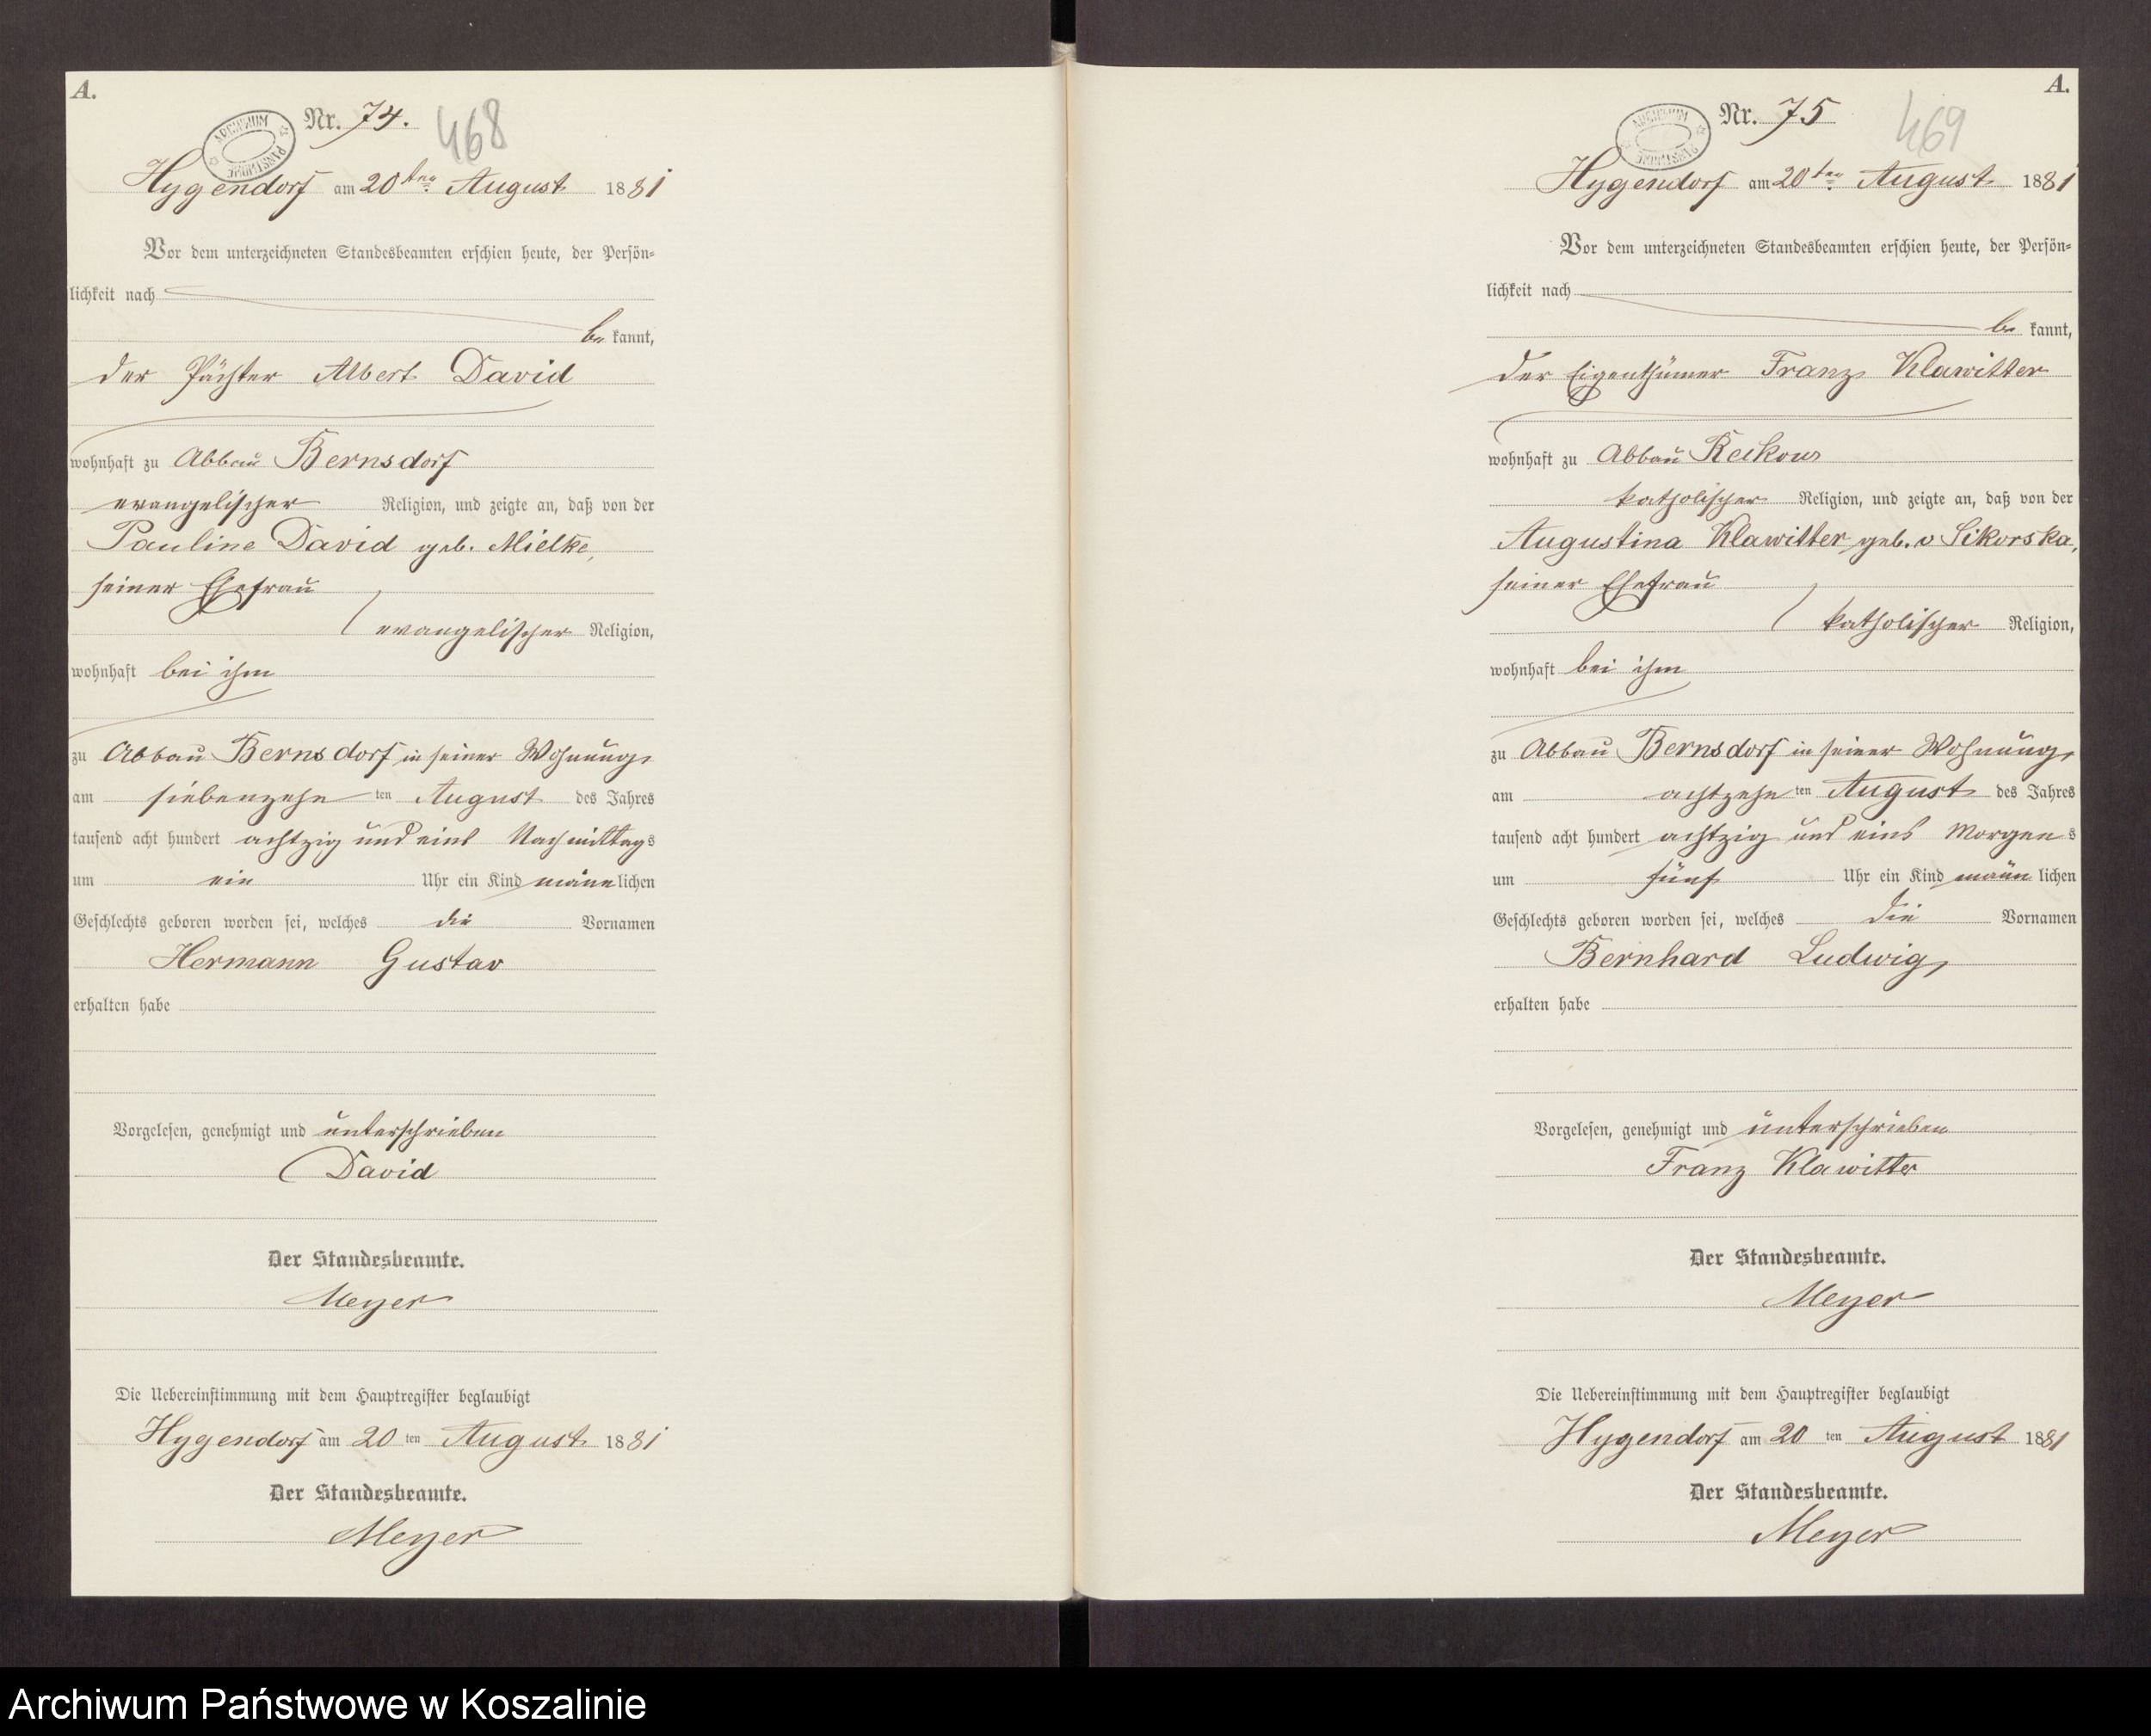 A.
Nr. 74.
468
ARCHIWUM PAŃSTWOWE
Hygendorf am 20ten August 1881
Vor dem unterzeichneten Standesbeamten erschien heute, der Persön-
lichkeit nach
be kannt,
der Pächter Albert David
wohnhaft zu Abbau Bernsdorf
evangelischer Religion, und zeigte an, daß von der
Pauline David geb. Mielke,
seiner Ehefrau
evangelischer Religion,
wohnhaft bei ihm
zu Abbau Bernsdorf in seiner Wohnung,
am siebenzehn ten August des Jahres
tausend acht hundert achtzig und eins Nachmittags
um ein Uhr ein Kind männlichen
Geschlechts geboren worden sei, welches die Vornamen
Hermann Gustav
erhalten habe
Vorgelesen, genehmigt und unterschrieben
David
Der Standesbeamte.
Meyer
Die Uebereinstimmung mit dem Hauptregister beglaubigt
Hygendorf am 20 ten August 1881
Der Standesbeamte.
Meyer
A.
Nr. 75
469
ARCHIWUM PAŃSTWOWE
Hygendorf am 20ten August 1881
Vor dem unterzeichneten Standesbeamten erschien heute, der Persön-
lichkeit nach
be kannt,
der Eigenthümer Franz Klawitter
wohnhaft zu Abbau Reckow
katholischer Religion, und zeigte an, daß von der
Augustina Klawitter geb. v Sikorska,
seiner Ehefrau
katholischer Religion,
wohnhaft bei ihm
zu Abbau Bernsdorf in seiner Wohnung,
am achtzehn ten August des Jahres
tausend acht hundert achtzig und eins Morgens
um fünf Uhr ein Kind männlichen
Geschlechts geboren worden sei, welches die Vornamen
Bernhard Ludwig,
erhalten habe
Vorgelesen, genehmigt und unterschrieben
Franz Klawitter
Der Standesbeamte.
Meyer
Die Uebereinstimmung mit dem Hauptregister beglaubigt
Hygendorf am 20 ten August 1881
Der Standesbeamte.
Meyer
Archiwum Państwowe w Koszalinie